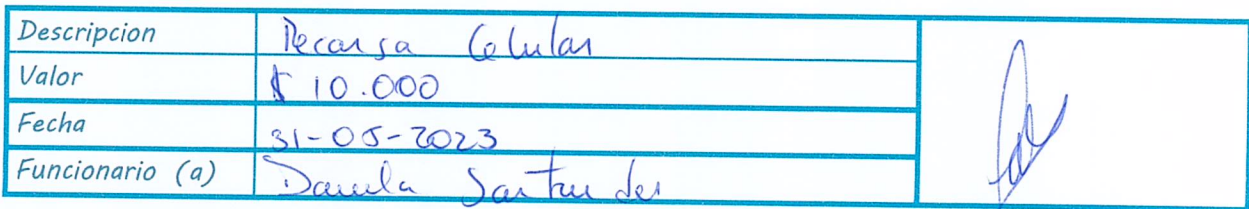 Descripcion Recarga Celular
Valor $ 10.000
Fecha 31-05-2023
Funcionario (a) Daniela Santander